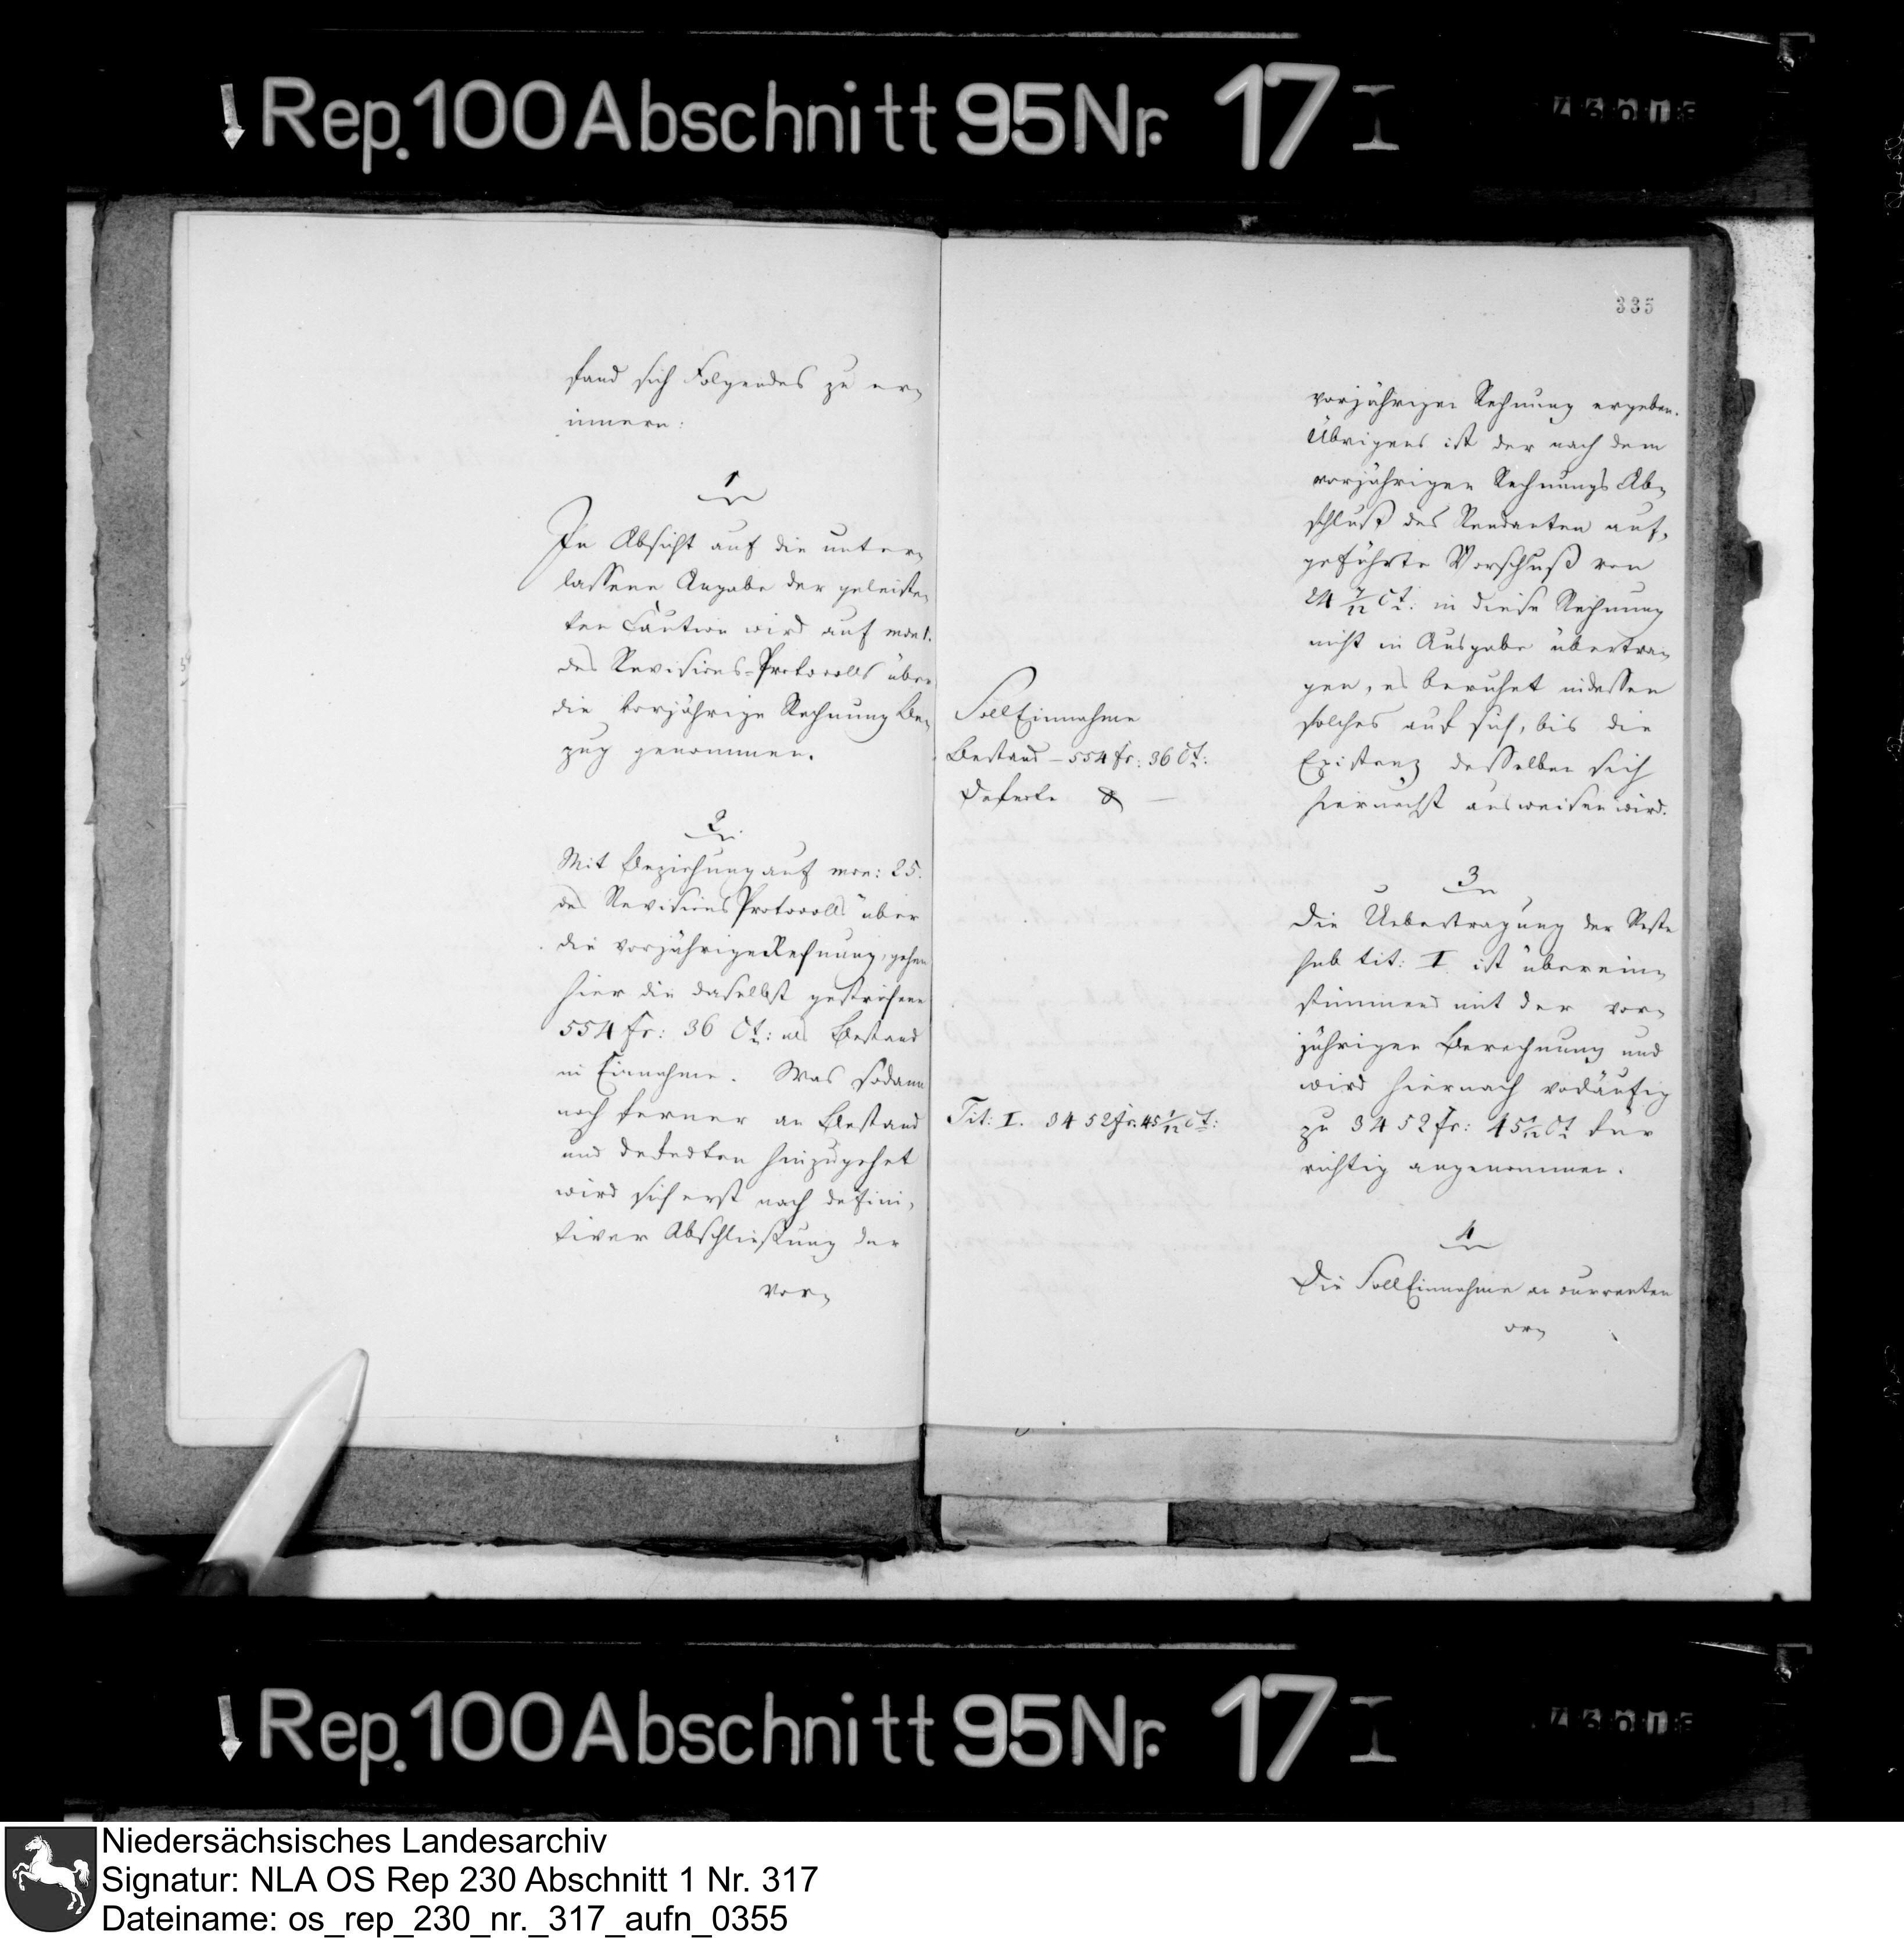 Rep. 100 Abschnitt 95 Nr. 17 I
fand sich Folgendes zu er-
innern:
1
In Absicht auf die unter-
lassene Angabe der geleiste-
ten Caution wird auf mon 1.
des Revisions-Protocolls über
die vorjährige Rechnung Be-
zug genommen.
2.
Mit Beziehung auf mon: 25.
des RevisionsProtocolls über
die vorjährige Rechnung, gehen
hier die daselbst gestrichene
554 fr: 36 Ct: als Bestand
in Einnahme. Was sodann
noch ferner an Bestand
und Defecten hinzugehet
wird sich erst nach defini-
tiver Abschließung der
vor-
335
vorjährigen Rechnung ergeben.
Übrigens ist der nach dem
vorjährigen Rechnungs Ab-
schluß des Rendanten auf-
geführte Vorschuß von
24 7/12 Ct: in diese Rechnung
nicht in Ausgabe übertra-
gen, es beruhet indessen
solches auf sich, bis die
Existenz desselben sich
hiernächst ausweisen wird.
SollEinnahme
Bestand – 554 fr: 36 Ct:
Defecte —
3
Die Uebertragung der Reste
sub tit: I. ist überein-
stimmend mit der vor-
jährigen Berechnung und
wird hiernach vorläufig
zu 3452 fr: 45 1/12 Ct für
richtig angenommen.
Tit: I. 3452 fr. 45 1/12 Ct:
4
Die SollEinnahme an currenten
or-
Rep. 100 Abschnitt 95 Nr. 17 I
Niedersächsisches Landesarchiv
Signatur: NLA OS Rep 230 Abschnitt 1 Nr. 317
Dateiname: os_rep_230_nr._317_aufn_0355